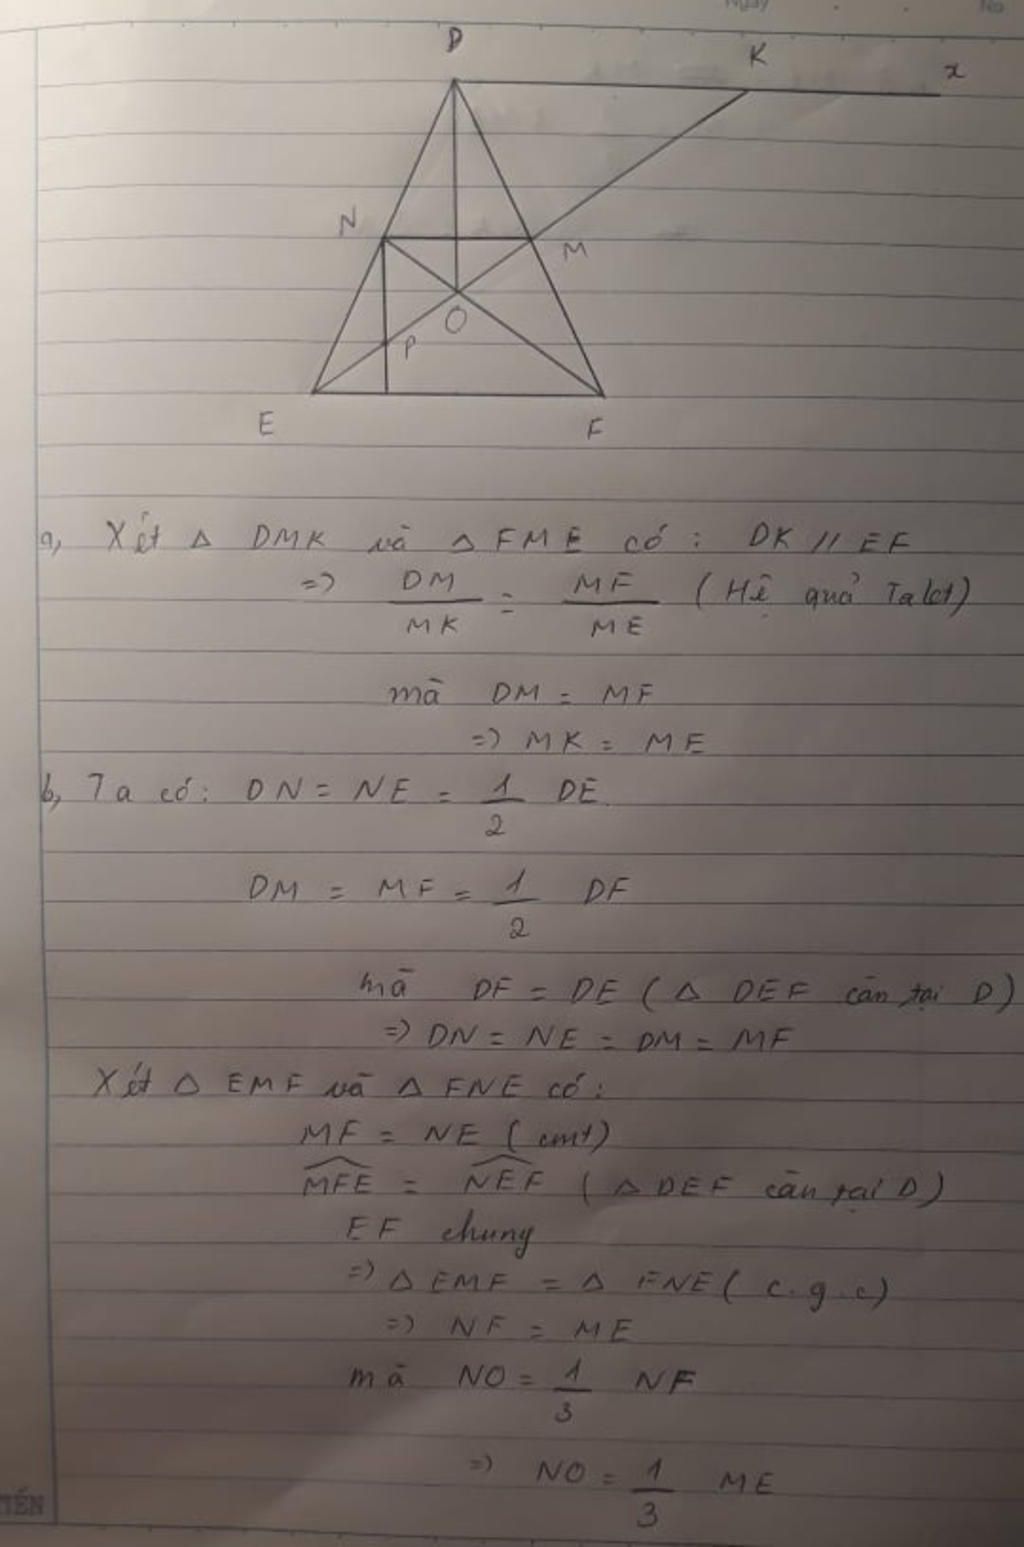 Ngày
No
D
K
x
N
M
O
P
E
F
a, Xét △ DMK và △ FME có : DK // EF
=> DM/MK = MF/ME (Hệ quả Talet)
mà DM = MF
=> MK = ME
b, Ta có: DN = NE = 1/2 DE.
DM = MF = 1/2 DF
mà DF = DE (△ DEF cân tại D)
=> DN = NE = DM = MF
Xét △ EMF và △ FNE có:
MF = NE (cmt)
MFE = NEF (△ DEF cân tại D)
EF chung
=> △ EMF = △ FNE (c.g.c)
=> NF = ME
mà NO = 1/3 NF
=> NO = 1/3 ME